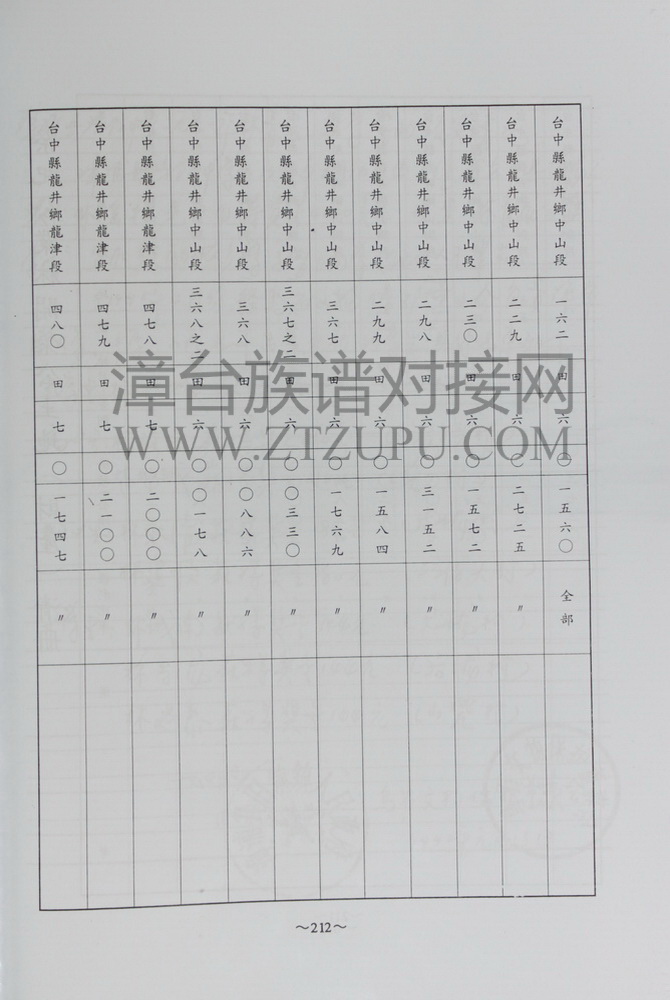 台中縣龍井鄉中山段 一六二 田 六 〇 一五六〇 全部
台中縣龍井鄉中山段 二二九 田 六 〇 二七二五 〃
台中縣龍井鄉中山段 二三〇 田 六 〇 一五七二 〃
台中縣龍井鄉中山段 二九八 田 六 〇 三一五二 〃
台中縣龍井鄉中山段 二九九 田 六 〇 一五八四 〃
台中縣龍井鄉中山段 三六七 田 六 〇 一七六九 〃
台中縣龍井鄉中山段 三六七之二 田 六 〇 〇三三〇 〃
台中縣龍井鄉中山段 三六八 田 六 〇 〇八八六 〃
台中縣龍井鄉中山段 三六八之二 田 六 〇 〇一七八 〃
台中縣龍井鄉龍津段 四七八 田 七 〇 二〇〇〇 〃
台中縣龍井鄉龍津段 四七九 田 七 〇 二一〇〇 〃
台中縣龍井鄉龍津段 四八〇 田 七 〇 一七四七 〃
漳台族谱对接网
WWW.ZTZUPU.COM
～212～